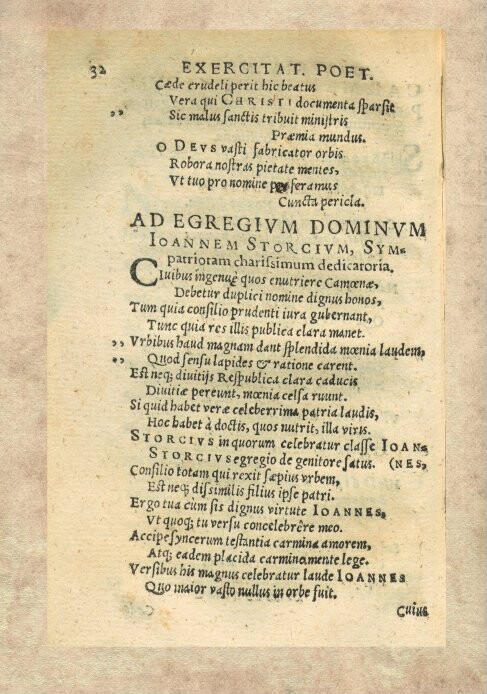 32 EXERCITAT. POET.
Cæde crudeli perit hic beatus
Vera qui CHRISTI documenta sparsit
,, Sic malus sanctis tribuit ministris
Præmia mundus.
O DEVS vasti fabricator orbis
Robora nostras pietate mentes,
Vt tuo pro nomine feramus
Cuncta pericla.
AD EGREGIVM DOMINVM
IOANNEM STORCIVM, SYM-
patriotam charissimum dedicatoria.
CIuibus ingenuè quos enutriere Camœnæ,
Debetur duplici nomine dignus honos,
Tum quia consilio prudenti iura gubernant,
Tunc quia res illis publica clara manet.
,, Vrbibus haud magnam dant splendida mœnia laudem,
,, Quod sensu lapides & ratione carent.
Est neq; diuitijs Respublica clara caducis
Diuitiæ pereunt, mœnia celsa ruunt.
Si quid habet veræ celeberrima patria laudis,
Hoc habet à doctis, quos nutrit, illa viris.
STORCIVS in quorum celebratur classe IOAN-
STORCIVS egregio de genitore satus. (NES,
Consilio totam qui rexit sæpius vrbem,
Est neq; dissimilis filius ipse patri.
Ergo tua cùm sis dignus virtute IOANNES,
Vt quoq; tu versu concelebrêre meo.
Accipe syncerum testantia carmina amorem,
Atq; eadem placida carmina mente lege.
Versibus his magnus celebratur laude IOANNES
Quo maior vasto nullus in orbe fuit.
Cuius